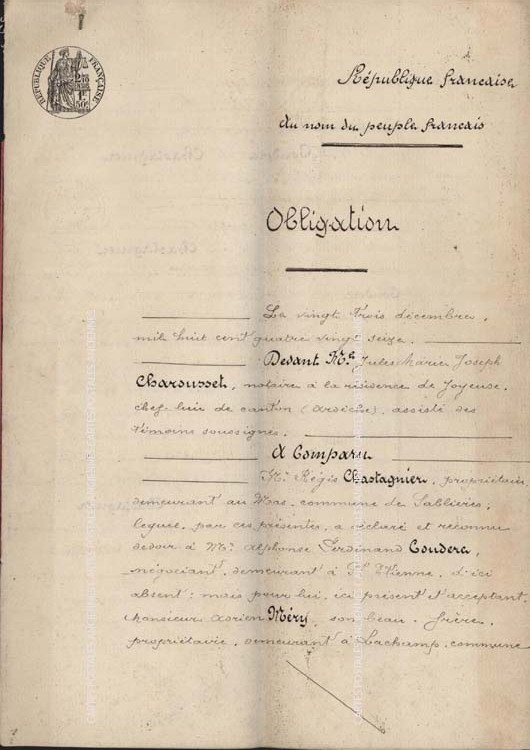 RÉPUBLIQUE FRANÇAISE
2/10 EN SUS
1F 50c
République française
Au nom du peuple français
Obligation
Le vingt trois décembre,
mil huit cent quatre vingt seize.
Devant Me Jules Marie Joseph
Charousset, notaire à la résidence de Joyeuse,
chef-lieu de canton (Ardèche), assisté des
témoins soussignés.
A Comparu
Mr. Régis Chastagnier, propriétaire,
demeurant au Mas, commune de Sablières,
lequel, par ces présentes, a déclaré et reconnu
devoir à Mr. Alphonse Ferdinand Coudere,
négociant, demeurant à St Etienne, d'ici
absent; mais pour lui, ici présent et acceptant,
Monsieur Adrien Méry, son beau-frère,
propriétaire, demeurant à Lachamp, commune